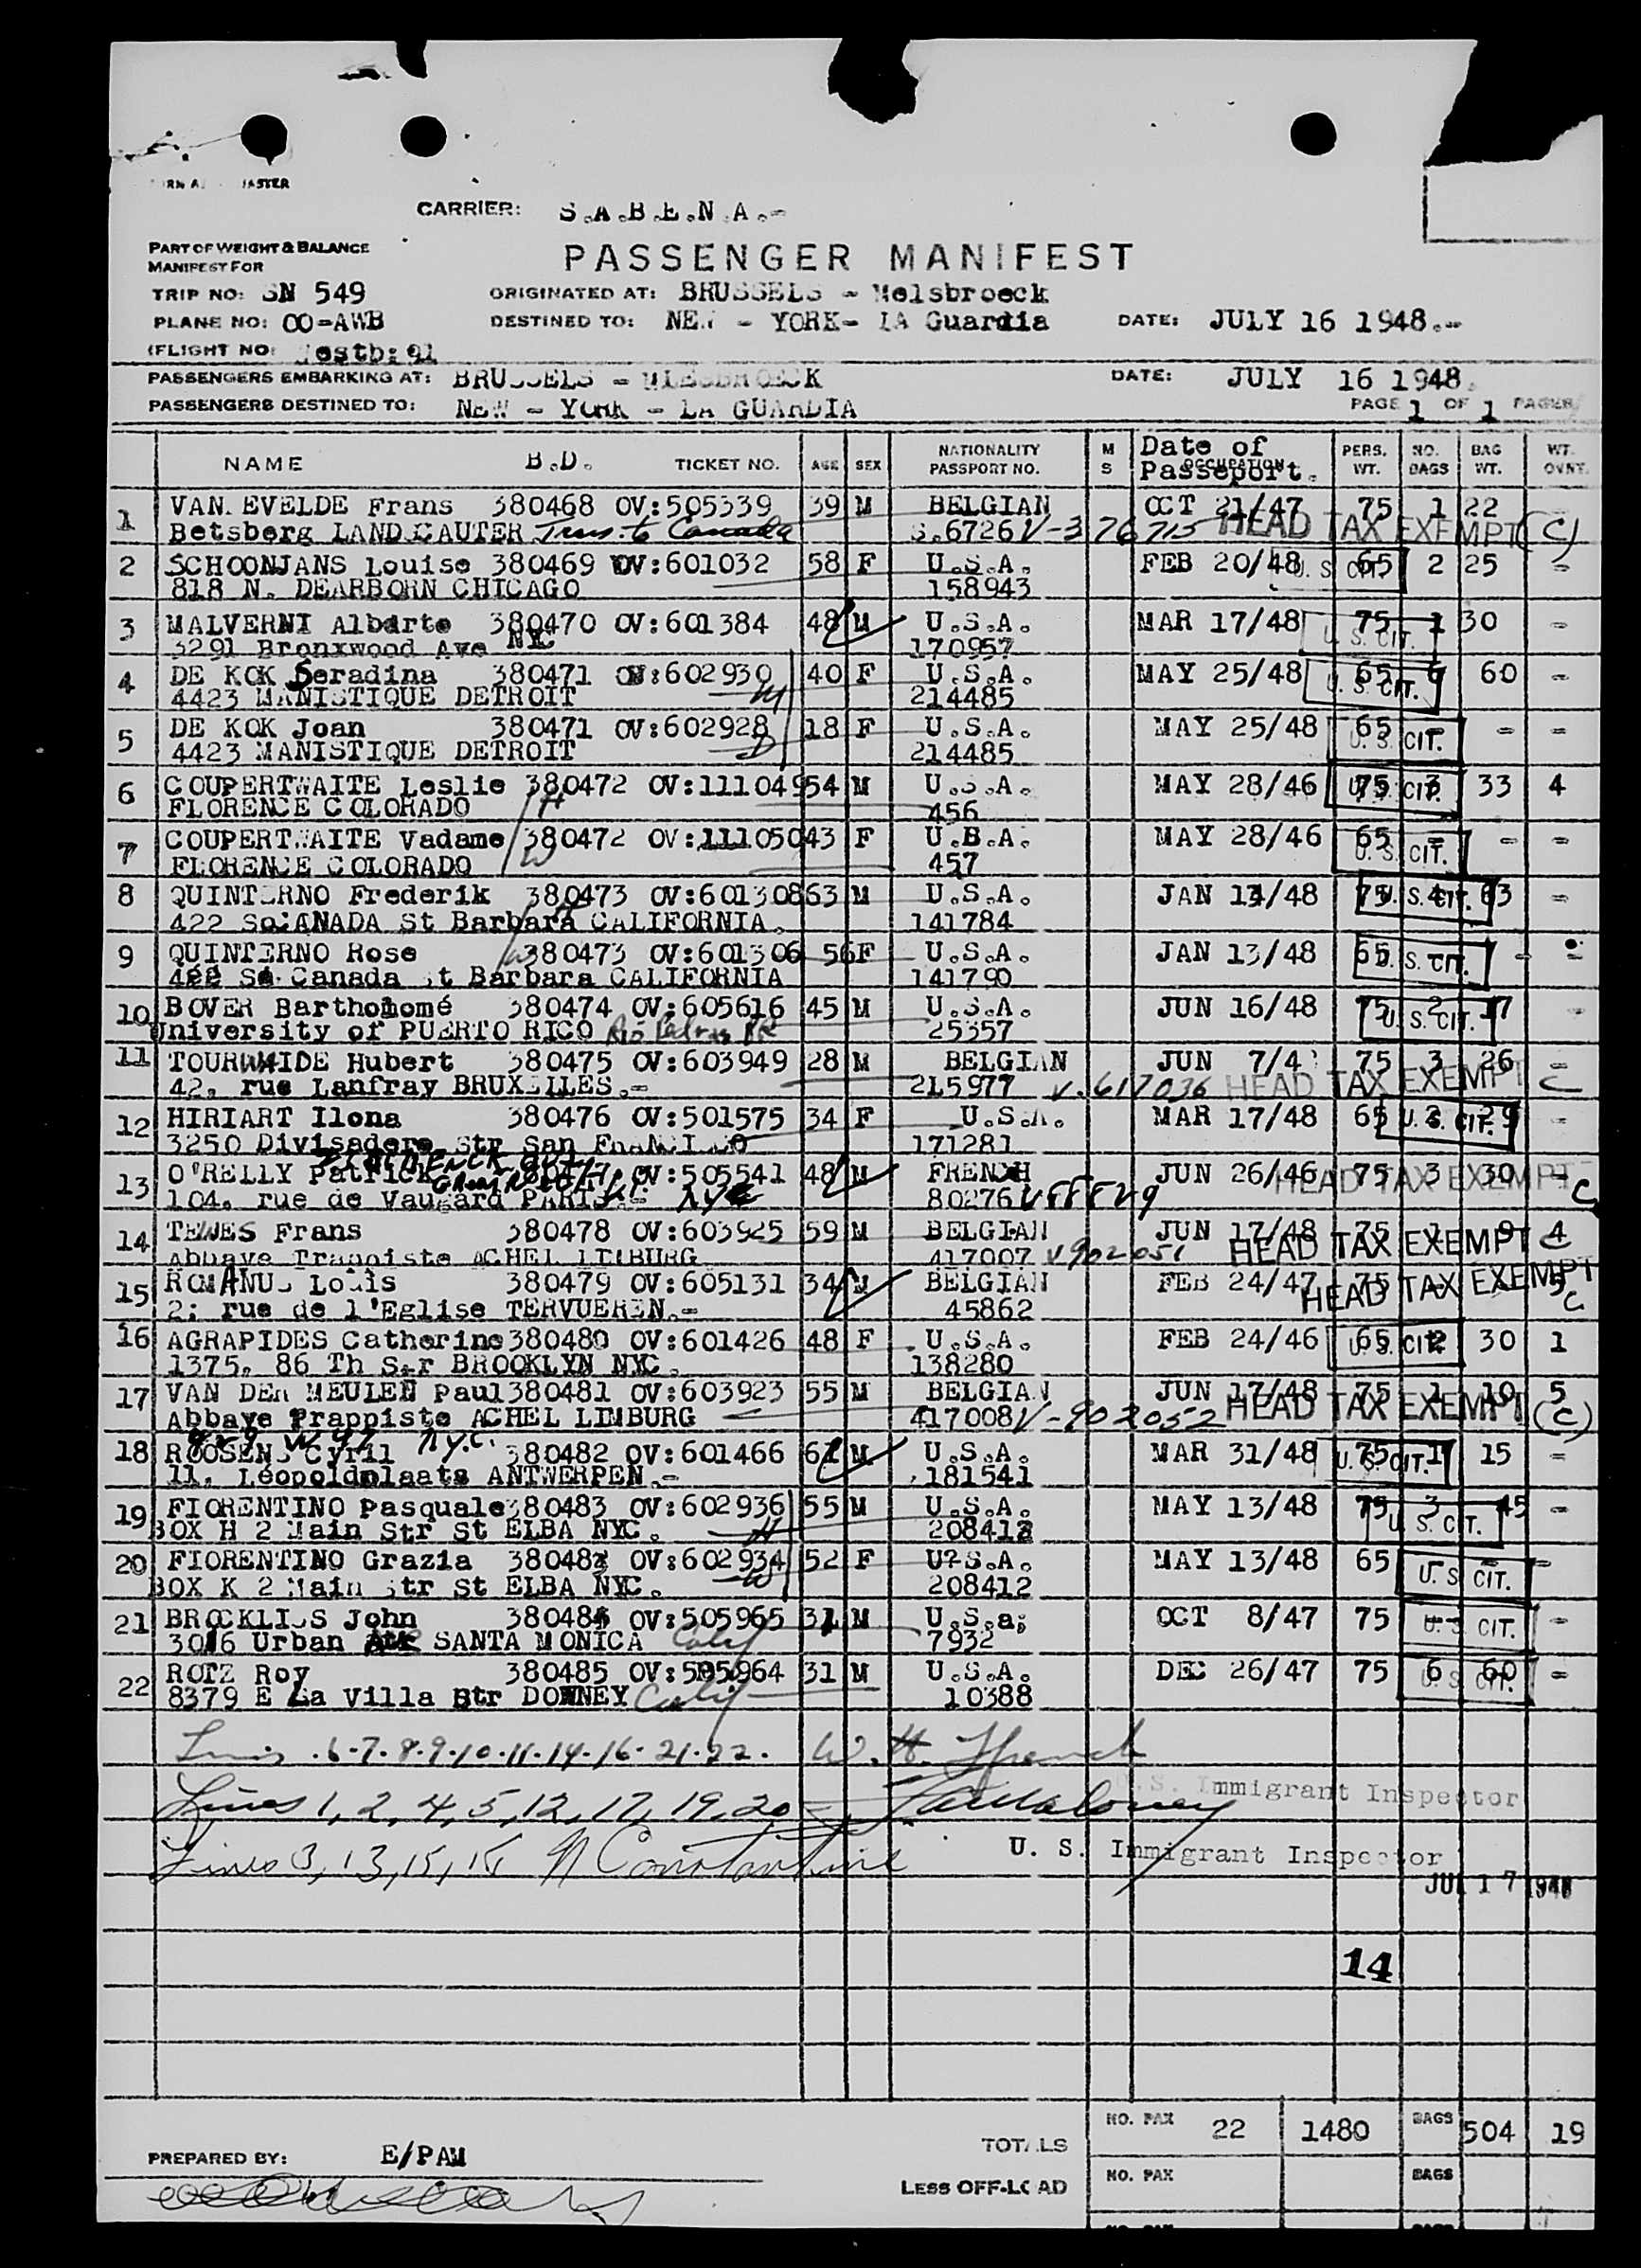 CARRIER: S.A.B.E.N.A.-
PART OF WEIGHT & BALANCE
MANIFEST FOR
PASSENGER MANIFEST
TRIP NO: SN 549 ORIGINATED AT: BRUSSELS - Melsbroeck
PLANE NO: OO-AWB DESTINED TO: NEW - YORK- LA Guardia DATE: JULY 16 1948.-
FLIGHT NO:
PASSENGERS EMBARKING AT: BRUSSELS - DATE: JULY 16 1948.
PASSENGERS DESTINED TO: NEW - YORK - LA GUARDIA PAGE 1 OF 1 PAGES
NAME B.D. TICKET NO. AGE SEX NATIONALITY PASSPORT NO. M S Date of Passeport. OCCUPATION PERS. WT. NO. BAGS BAG WT. WT. OVNT.
1 VAN EVELDE Frans 380468 OV:505339 39 M BELGIAN OCT 21/47 75 1 22
Betsberg LAND.CAUTER Trns. to Canada S.6726 V-376715 HEAD TAX EXEMPT (C)
2 SCHOONJANS Louise 380469 OV:601032 58 F U.S.A. FEB 20/48 65 U.S. CIT. 2 25 -
818 N. DEARBORN CHICAGO 158943
3 MALVERNI Albarto 380470 OV:601384 48 M U.S.A. MAR 17/48 75 1 30 -
3291 Bronxwood Ave NY 170957 U.S. CIT.
4 DE KOK Seradina 380471 OV:602930 40 F U.S.A. MAY 25/48 65 6 60 -
4423 MANISTIQUE DETROIT M 214485 U.S. CIT.
5 DE KOK Joan 380471 OV:602928 18 F U.S.A. MAY 25/48 65 - - -
4423 MANISTIQUE DETROIT D 214485 U.S. CIT.
6 COUPERTWAITE Leslie 380472 OV:111049 54 M U.S.A. MAY 28/46 75 3 U.S. CIT. 33 4
FLORENCE COLORADO H 456
7 COUPERTWAITE Vadame 380472 OV:111050 43 F U.B.A. MAY 28/46 65 - - -
FLORENCE COLORADO W 457 U.S. CIT.
8 QUINTERNO Frederik 380473 OV:601308 63 M U.S.A. JAN 13/48 75 4 U.S. CIT. 63 -
422 So.CANADA St Barbara CALIFORNIA. H 141784
9 QUINTERNO Rose 380473 OV:601306 56 F U.S.A. JAN 13/48 65 U.S. CIT. - -
422 So. Canada St Barbara CALIFORNIA W 141790
10 BOVER Bartholomé 380474 OV:605616 45 M U.S.A. JUN 16/48 75 2 17 -
University of PUERTO RICO Rio Pedras PR 25357 U.S. CIT.
11 TOURWAIDE Hubert 380475 OV:603949 28 M BELGIAN JUN 7/4 75 3 26 -
42, rue Lanfray BRUXELLES.- 215977 V.617036 HEAD TAX EXEMPT C
12 HIRIART Ilona 380476 OV:501575 34 F U.S.A. MAR 17/48 65 U.S. CIT. 29 -
3250 Divisadero Str San FRANCISCO 171281
13 O'RELLY Patrick OV:505541 48 M FRENCH JUN 26/46 75 3 30 -
104, rue de Vaugard PARIS NYC 80276 HEAD TAX EXEMPT C
14 TEWES Frans 380478 OV:603925 59 M BELGIAN JUN 17/48 75 1 9 4
Abbaye Trappiste ACHEL LIMBURG 417007 V902051 HEAD TAX EXEMPT C
15 ROMANUS Louis 380479 OV:605131 34 M BELGIAN FEB 24/47 75 - - 5
2; rue de l'Eglise TERVUEREN.- 45862 HEAD TAX EXEMPT C
16 AGRAPIDES Catherine 380480 OV:601426 48 F U.S.A. FEB 24/46 65 2 U.S. CIT. 30 1
1375, 86 Th Str BROOKLYN NYC. 138280
17 VAN DER MEULEN Paul 380481 OV:603923 55 M BELGIAN JUN 17/48 75 1 10 5
Abbaye Trappiste ACHEL LIMBURG 417008 V-902052 HEAD TAX EXEMPT (C)
18 ROOSENS Cyril N.Y.C. 380482 OV:601466 61 M U.S.A. MAR 31/48 75 1 U.S. CIT. 15 -
11, Léopoldplaats ANTWERPEN.- 181541
19 FIORENTINO Pasquale 380483 OV:602936 55 M U.S.A. MAY 13/48 75 3 45 -
BOX H 2 Main Str St ELBA NYC. H 208412 U.S. CIT.
20 FIORENTINO Grazia 380483 OV:602934 52 F U?S.A. MAY 13/48 65 - -
BOX K 2 Main Str St ELBA NYC. W 208412 U.S. CIT.
21 BROCKLISS John 380484 OV:505965 31 M U.S.a; OCT 8/47 75 U.S. CIT. -
3016 Urban Ave SANTA MONICA Calif 7932
22 ROTZ Roy 380485 OV:505964 31 M U.S.A. DEC 26/47 75 6 60 -
8379 E La Villa Str DOWNEY Calif 10388 U.S. CIT.
Lines 6-7-8-9-10-11-14-16-21-22. W. H.
U.S. Immigrant Inspector
Lines 1, 2, 4, 5, 12, 17, 19, 20
Lines 3, 13, 15, 18 N Constantine
U. S. Immigrant Inspector
JUL 17 1948
14
TOTALS NO. PAX 22 1480 BAGS 504 19
PREPARED BY: E/PAM
LESS OFF-LOAD NO. PAX BAGS